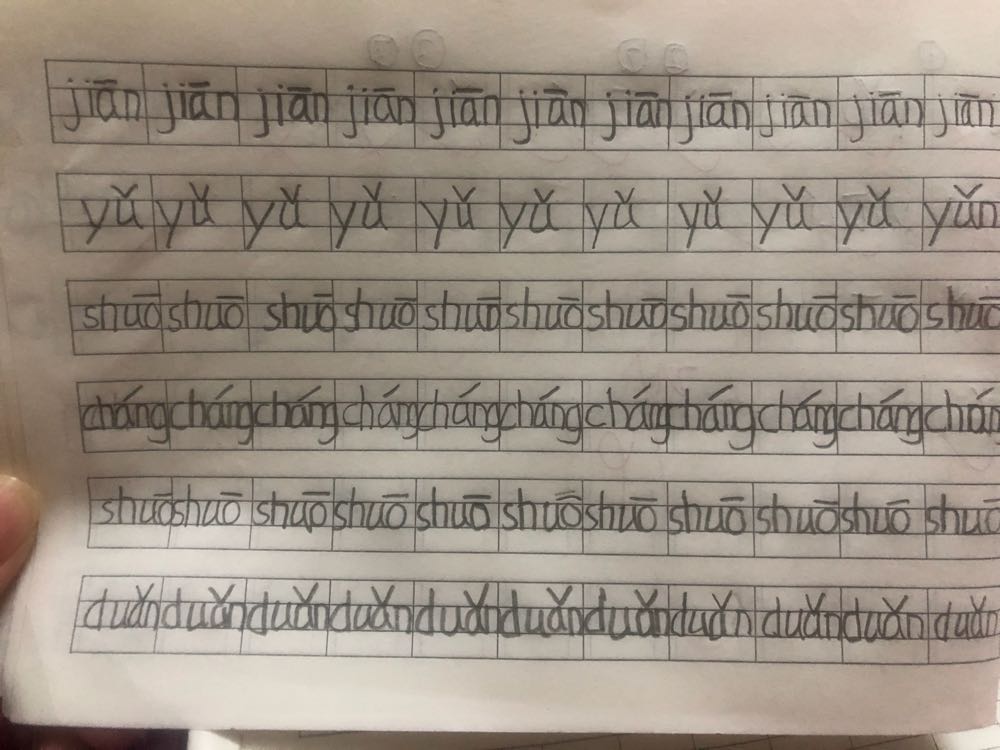 jiān jiān jiān jiān jiān jiān jiān jiān jiān jiān jiān
yǔ yǔ yǔ yǔ yǔ yǔ yǔ yǔ yǔ yǔ yǔn
shuō shuō shuō shuō shuō shuō shuō shuō shuō shuō shuō
cháng cháng cháng cháng cháng cháng cháng cháng cháng cháng chán
shuō shuō shuō shuō shuō shuō shuō shuō shuō shuō shuō
duǎn duǎn duǎn duǎn duǎn duǎn duǎn duǎn duǎn duǎn duǎn